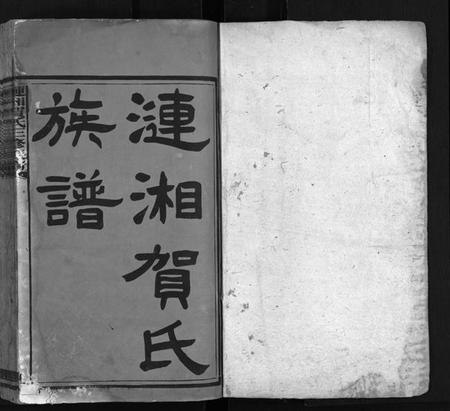 漣湘賀氏
族譜